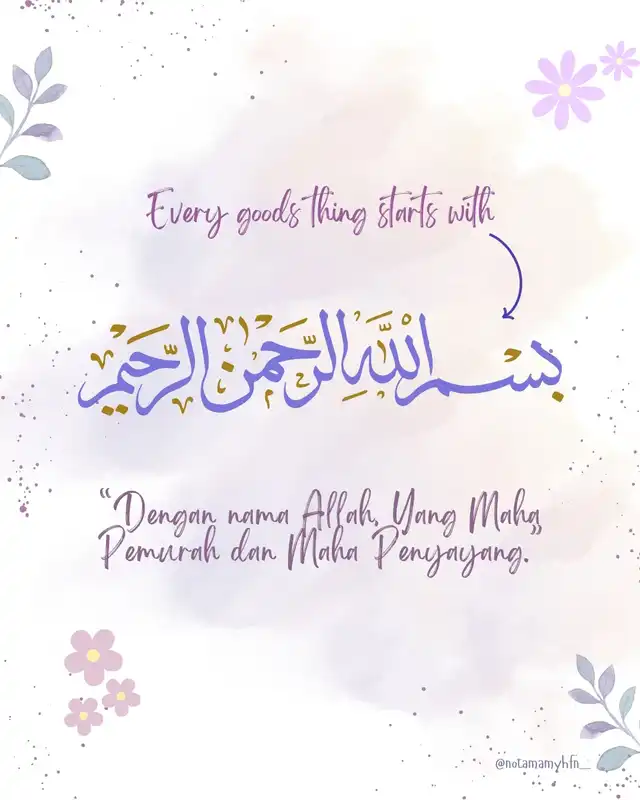 Every goods thing starts with
بِسْمِ اللَّهِ الرَّحْمٰنِ الرَّحِيْمِ
“Dengan nama Allah, Yang Maha
Pemurah dan Maha Penyayang.”
@notamamyhfn_